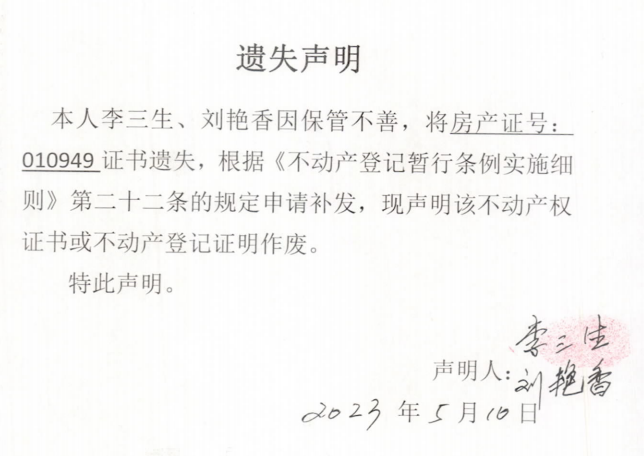 遗失声明
本人李三生、刘艳香因保管不善，将房产证号：
010949 证书遗失，根据《不动产登记暂行条例实施细
则》第二十二条的规定申请补发，现声明该不动产权
证书或不动产登记证明作废。
特此声明。
李三生
声明人：刘艳香
2023 年 5 月 10 日